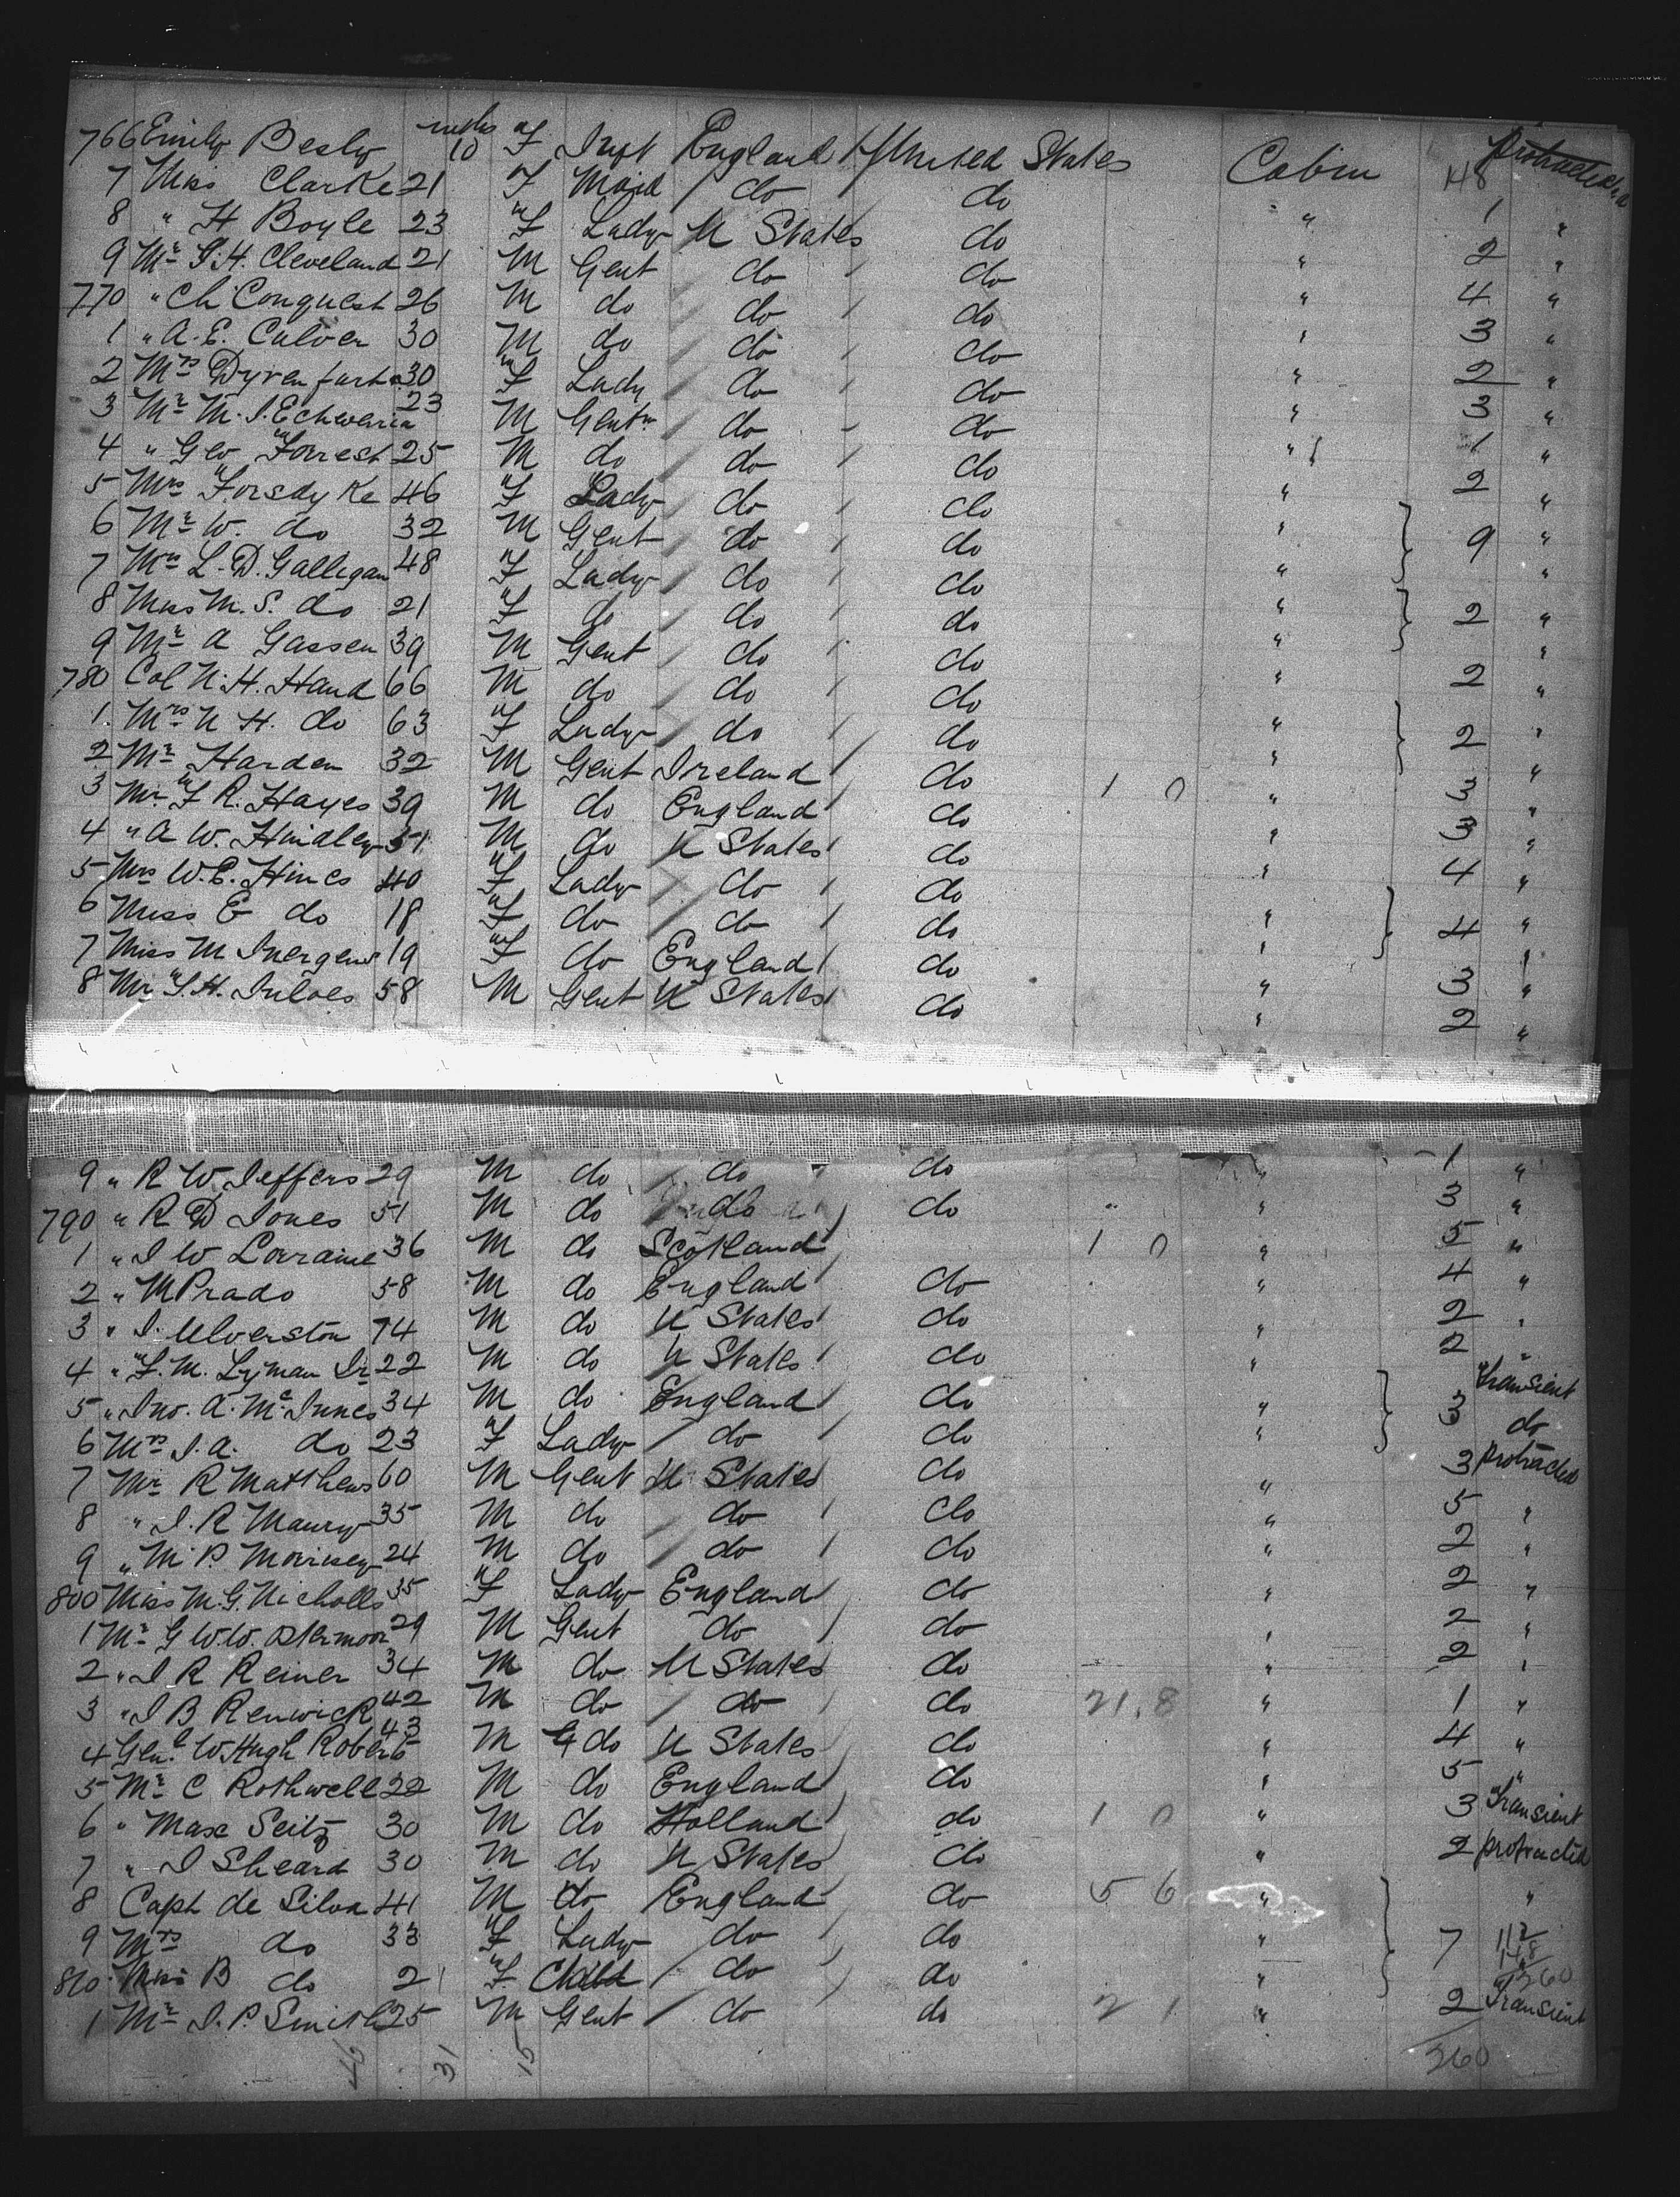 766 Emily Besly mths 10 F Inft England United States Cabin 148 protracted
7 Miss Clarke 21 F Maid do do " 1 "
8 " H Boyle 23 F Lady U States do " 2 "
9 Mr S. H. Cleveland 21 M Gent do do " 4 "
770 " Ch Conquest 26 M do do do " 3 "
1 " A. E. Culver 30 M do do do " 2 "
2 Mrs Dyrenfurth 30 F Lady do do " 3 "
3 Mr M. I. Echweria 23 M Gentn do do " 1 "
4 " Geo Forrest 25 M do do do " 2 "
5 Mrs Forsdyke 46 F Lady do do "
6 Mr W. do 32 M Gent do do " 9 "
7 Mrs L. D. Galligan 48 F Lady do do "
8 Miss M. S. do 21 F do do do " 2 "
9 Mr A Gassen 39 M Gent do do " 2 "
780 Col N. H. Hand 66 M do do do "
1 Mrs N H. do 63 F Lady do do " 2 "
2 Mr Harden 32 M Gent Ireland do 1 0 " 3 "
3 Mr F R. Hayes 39 M do England do " 3 "
4 " A W. Hindley 51 M do U States do " 4 "
5 Mrs W. E. Hines 40 F Lady do do "
6 Miss E do 18 F do do do " 4 "
7 Miss M Juergens 19 F do England do " 3 "
8 Mr S. H. Inloes 58 M Gent U States do " 2 "
9 " R W. Jeffers 29 M do do do " 1 "
790 " R D Jones 51 M do do do " 3 "
1 " J W Lorraine 36 M do Scotland 1 0 " 5 "
2 " M Prado 58 M do England do " 4 "
3 " J. Ulverston 74 M do U States do " 2 "
4 " F. M. Lyman Jr 22 M do U States do " 2 "
5 " Jno. A. McInnes 34 M do England do " 3 transient
6 Mrs J. A. do 23 F Lady do do " do
7 Mr R Matthews 60 M Gent U States do " 3 protracted
8 " J. R Maury 35 M do do do " 5 "
9 " M P. Morrisey 24 M do do do " 2 "
800 Miss M. G. Nicholls 35 F Lady England do " 2 "
1 Mr G W. W. Ostermoor 29 M Gent do do " 2 "
2 " J R Reiner 34 M do U States do " 2 "
3 " J B Renwick 42 M do do do 21.8 " 1 "
4 Genl W Hugh Roberts 43 M do U States do " 4 "
5 Mr C Rothwell 22 M do England do " 5 "
6 " Max Seitz 30 M do Holland do 1 0 " 3 Transient
7 " J Sheard 30 M do U States do " 2 protracted
8 Capt de Silva 41 M do England do 5 6 " "
9 Mrs do 33 F Lady do do " 7 112
148
260
810 Miss B do 2 F Child do do "
1 Mr J. P. Smith 25 M Gent do do 2 1 " 2 Transient
46 31 15 260